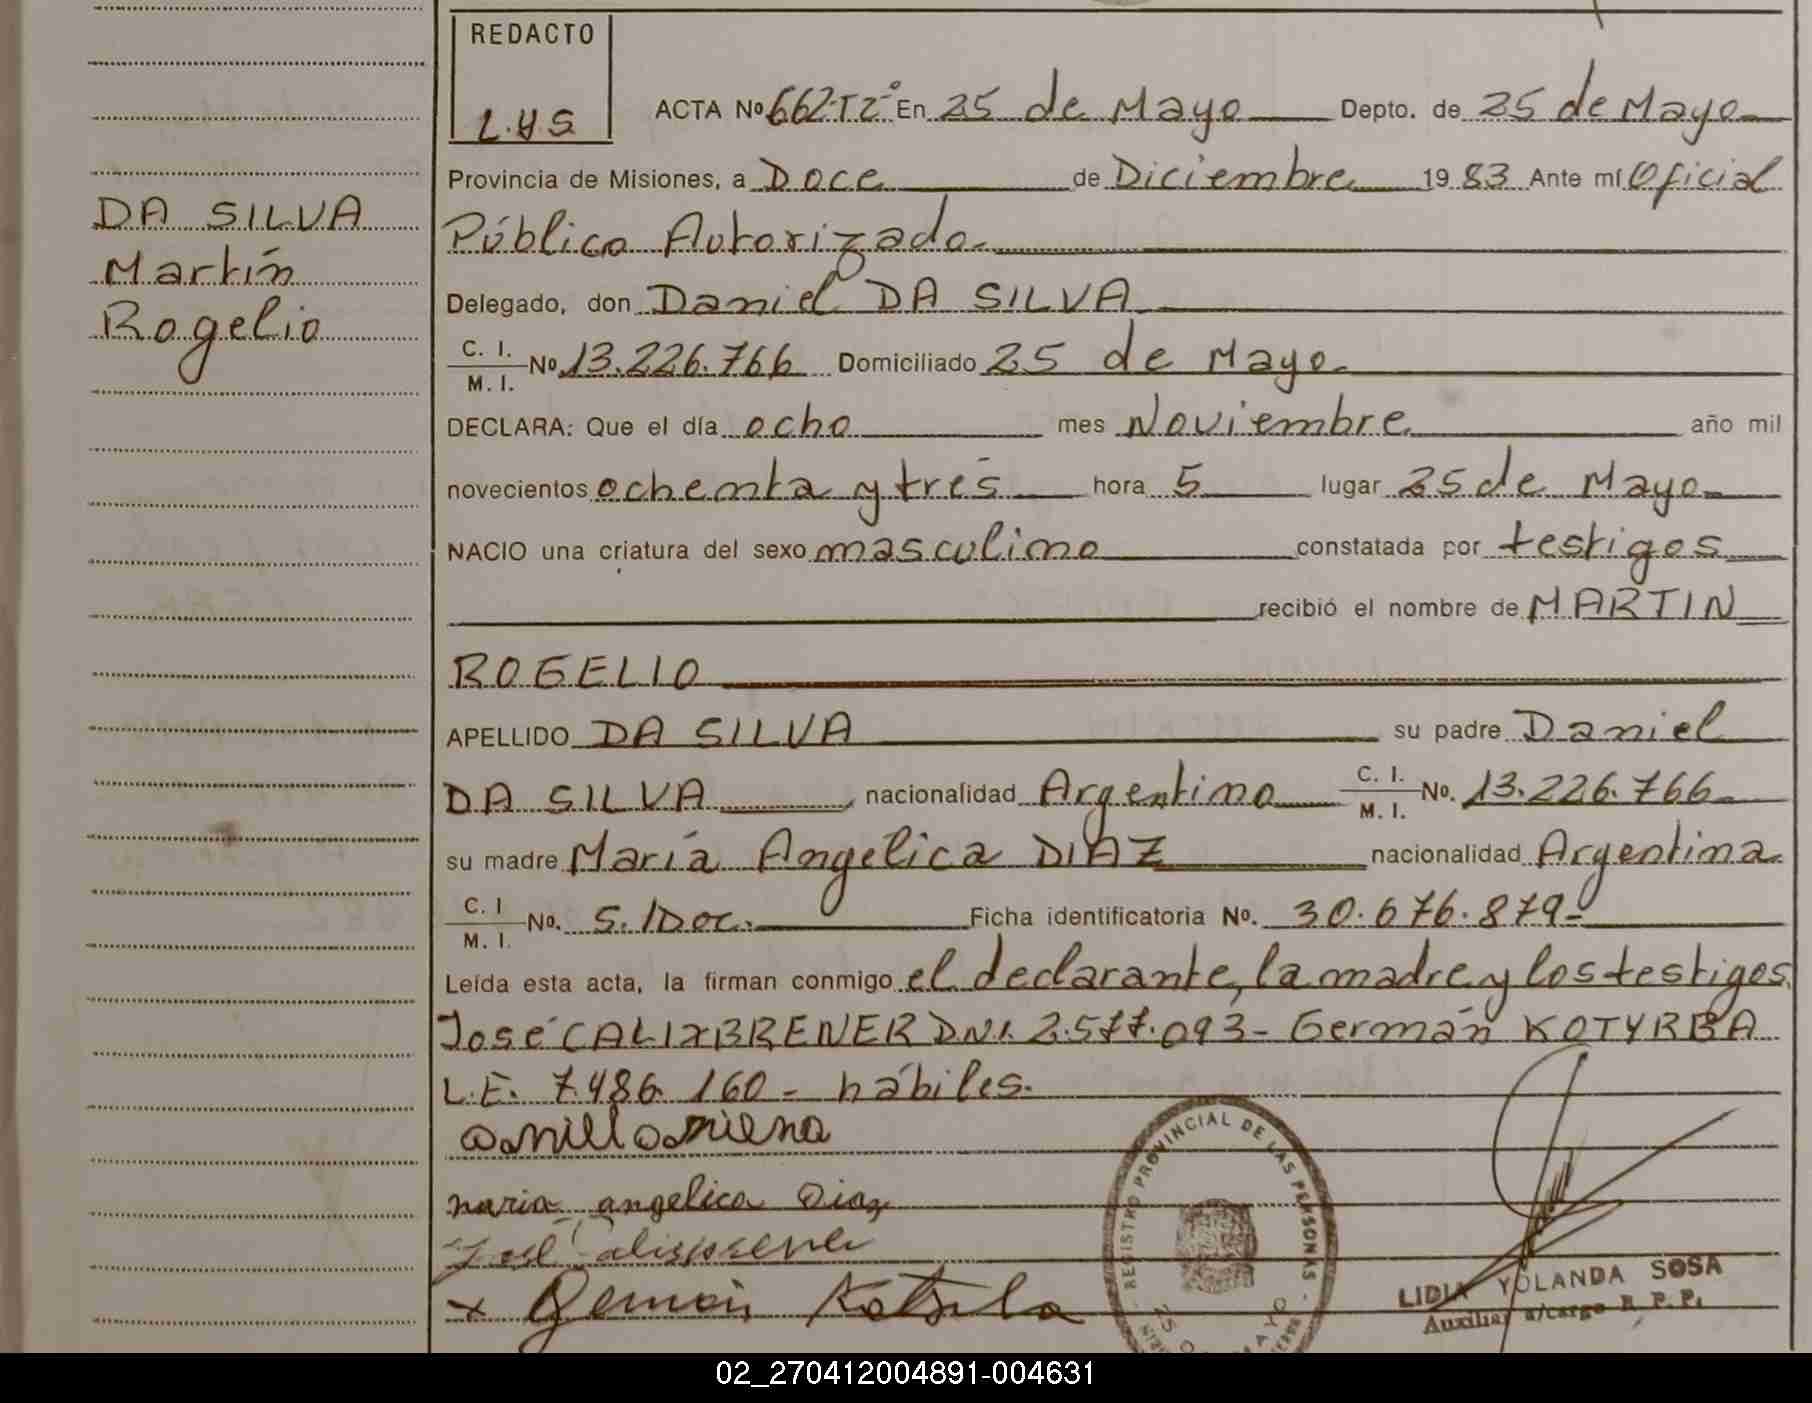 REDACTO
L.Y.S
ACTA Nº 662-Tº2º En 25 de Mayo Depto. de 25 de Mayo
Provincia de Misiones, a Doce de Diciembre 1983 Ante mí Oficial
Público Autorizado.
DA SILVA
Martín
Rogelio
Delegado, don Daniel DA SILVA
C. I.
M. I. Nº 13.226.766 Domiciliado 25 de Mayo.
DECLARA: Que el día ocho mes Noviembre año mil
novecientos ochenta y tres hora 5 lugar 25 de Mayo
NACIO una criatura del sexo masculino constatada por testigos
recibió el nombre de MARTIN
ROGELIO
APELLIDO DA SILVA su padre Daniel
DA SILVA, nacionalidad Argentino C. I. M. I. No. 13.226.766
su madre María Angelica DIAZ nacionalidad Argentina.
C. I M. I. No. S. /Doc. Ficha identificatoria No. 30.676.879-
Leída esta acta, la firman conmigo el declarante, la madre y los testigos
José CALIXBRENER DNI. 2.577.093- Germán KOTYRBA
L.E. 7.486.160- hábiles.
maria angelica Diaz
REGISTRO PROVINCIAL DE LAS PERSONAS
LIDIA YOLANDA SOSA
Auxiliar a/cargo R. P. P.
02_270412004891-004631